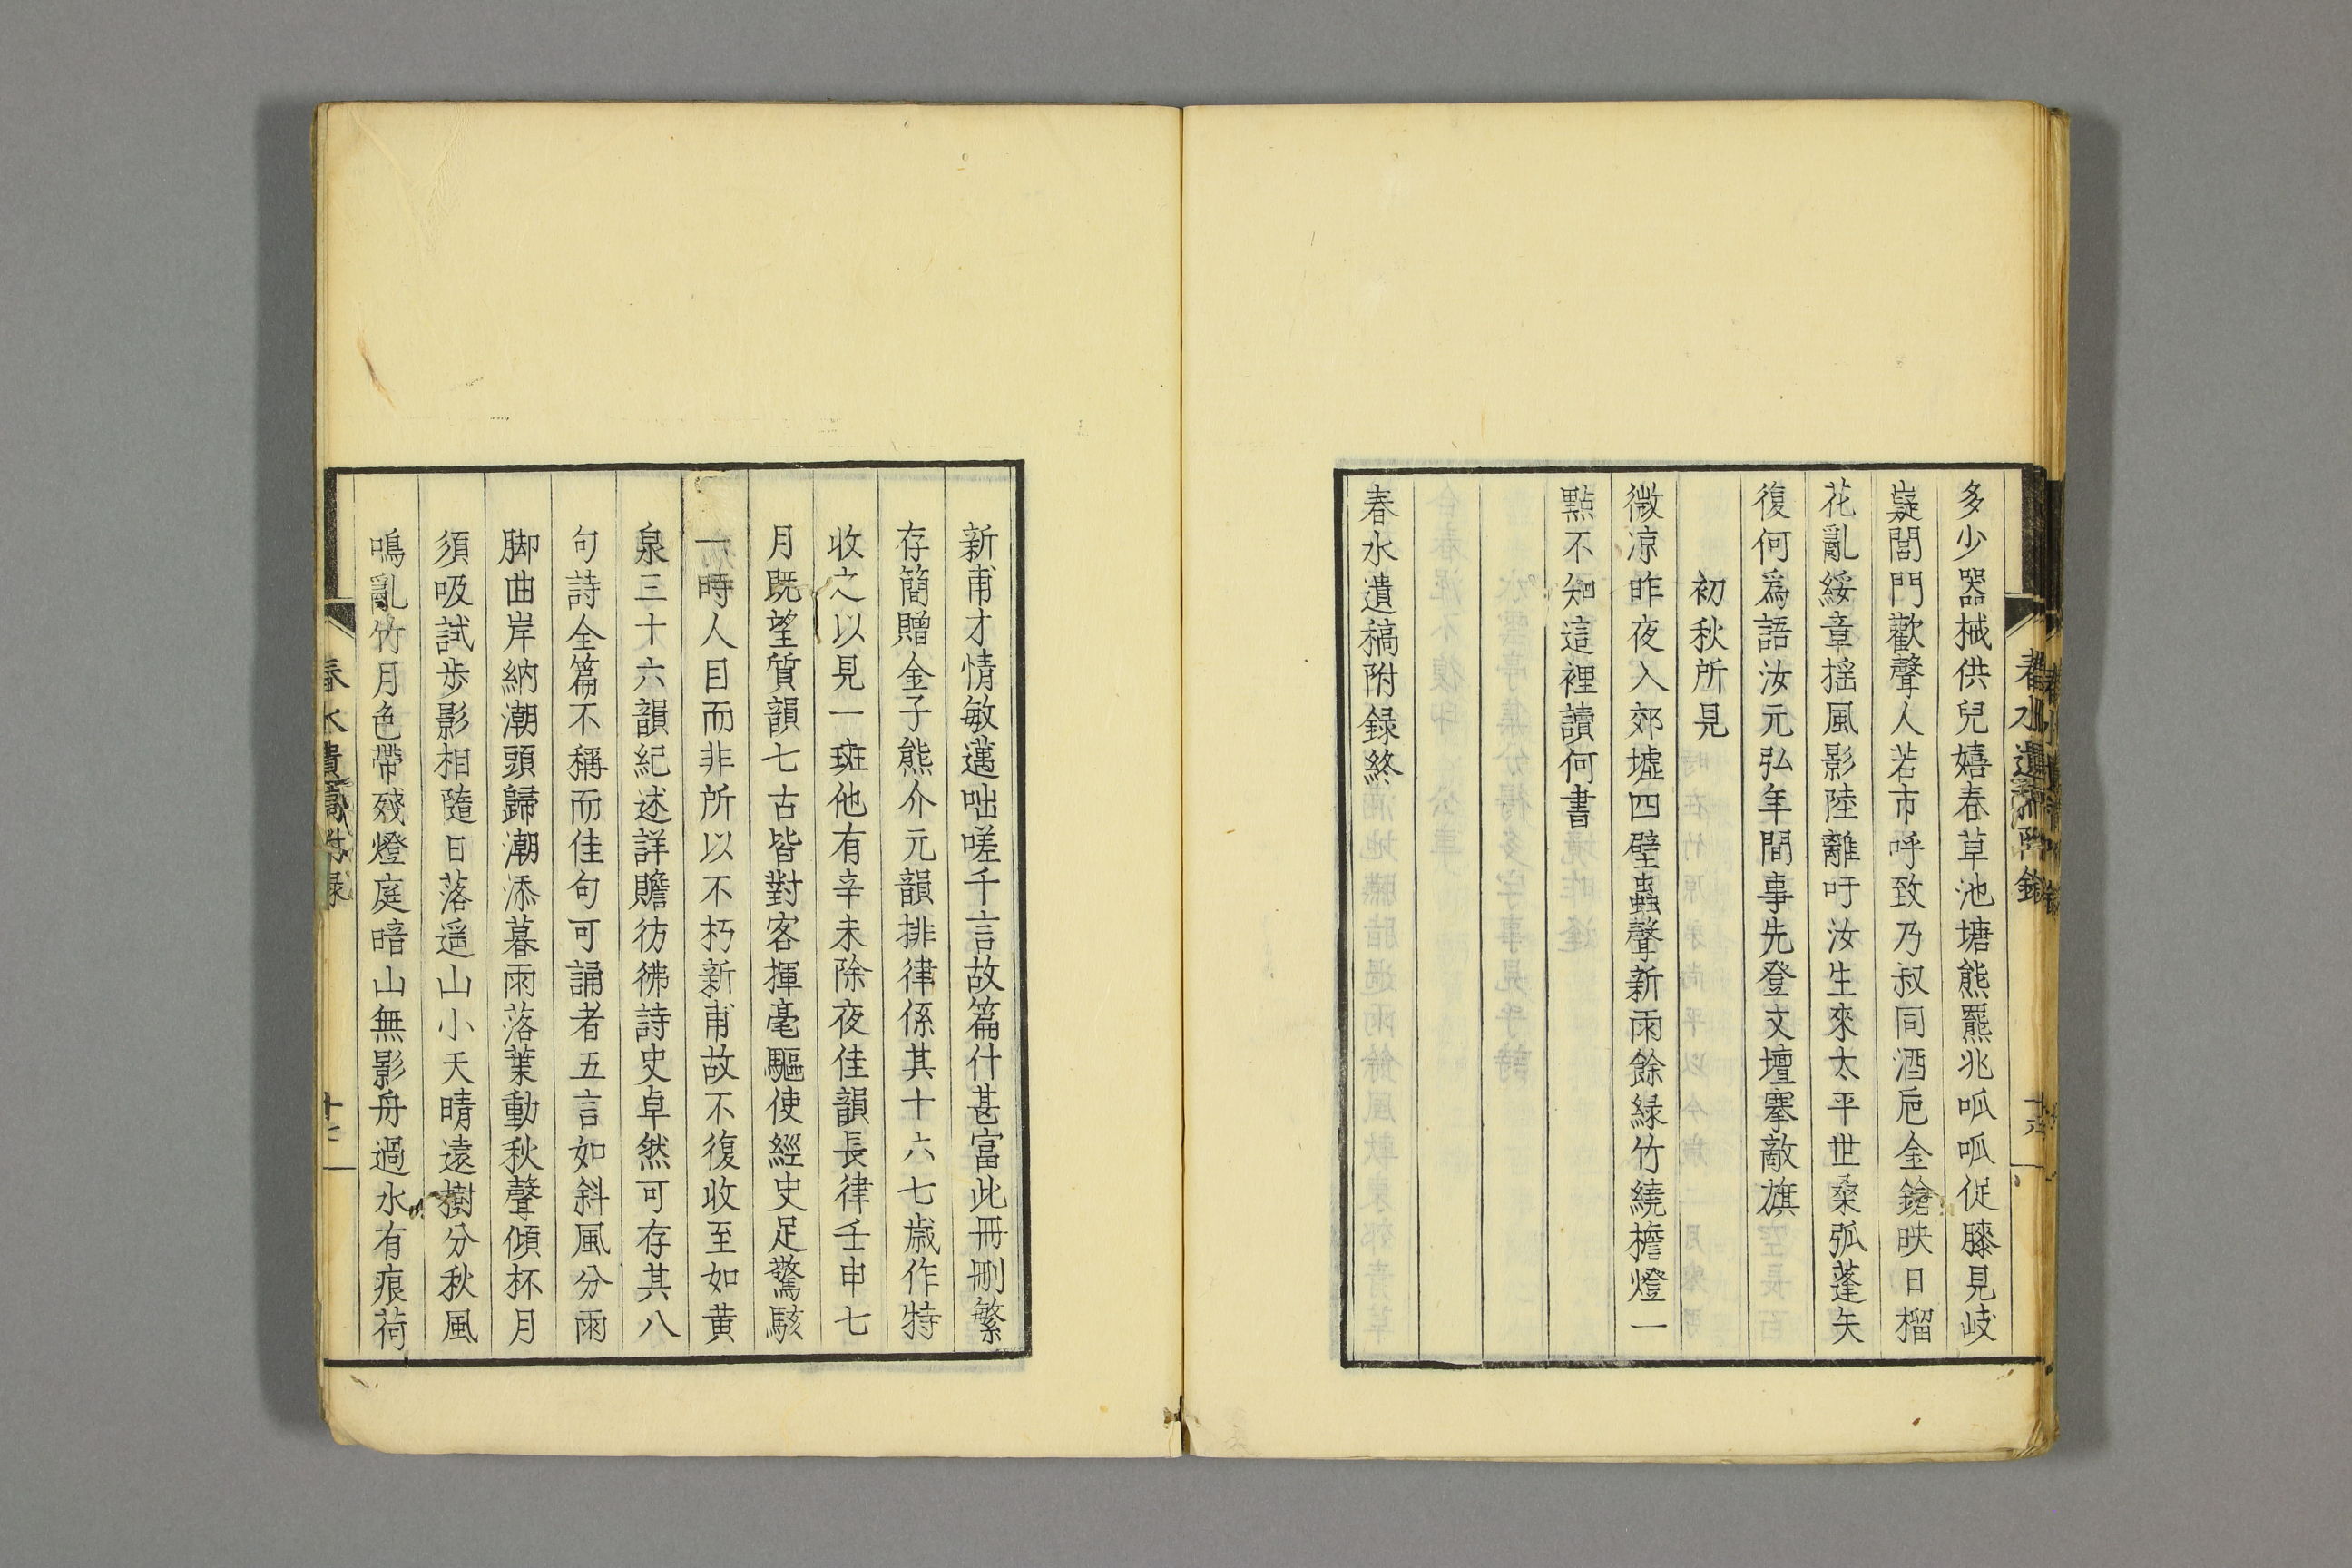 多少器械供兒嬉春草池塘熊羆兆呱呱促膝見岐
嶷閭門歡聲人若市呼致乃叔同酒巵金鎗映日榴
花亂綏章揺風影陸離吁汝生來太平世桑弧蓬矢
復何爲語汝元弘年間事先登文壇搴敵旗
初秋所見
微凉昨夜入郊墟四壁蟲聲新雨餘緑竹繞檐燈一
點不知這裡讀何書
春水遺稿附録終
新甫才情敏邁咄嗟千言故篇什甚富此冊刪繁
存簡贈金子熊介元韻排律係其十六七歳作特
收之以見一斑他有辛未除夜佳韻長律壬申七
月既望質韻七古皆對客揮毫驅使經史足驚駭
一時人目而非所以不朽新甫故不復收至如黄
泉三十六韻紀述詳贍彷彿詩史卓然可存其八
句詩全篇不稱而佳句可誦者五言如斜風分雨
脚曲岸納潮頭歸潮添暮雨落葉動秋聲傾杯月
須吸試歩影相隨日落遥山小天晴遠樹分秋風
鳴亂竹月色帶殘燈庭暗山無影舟過水有痕荷
春水遺稿附録
十七